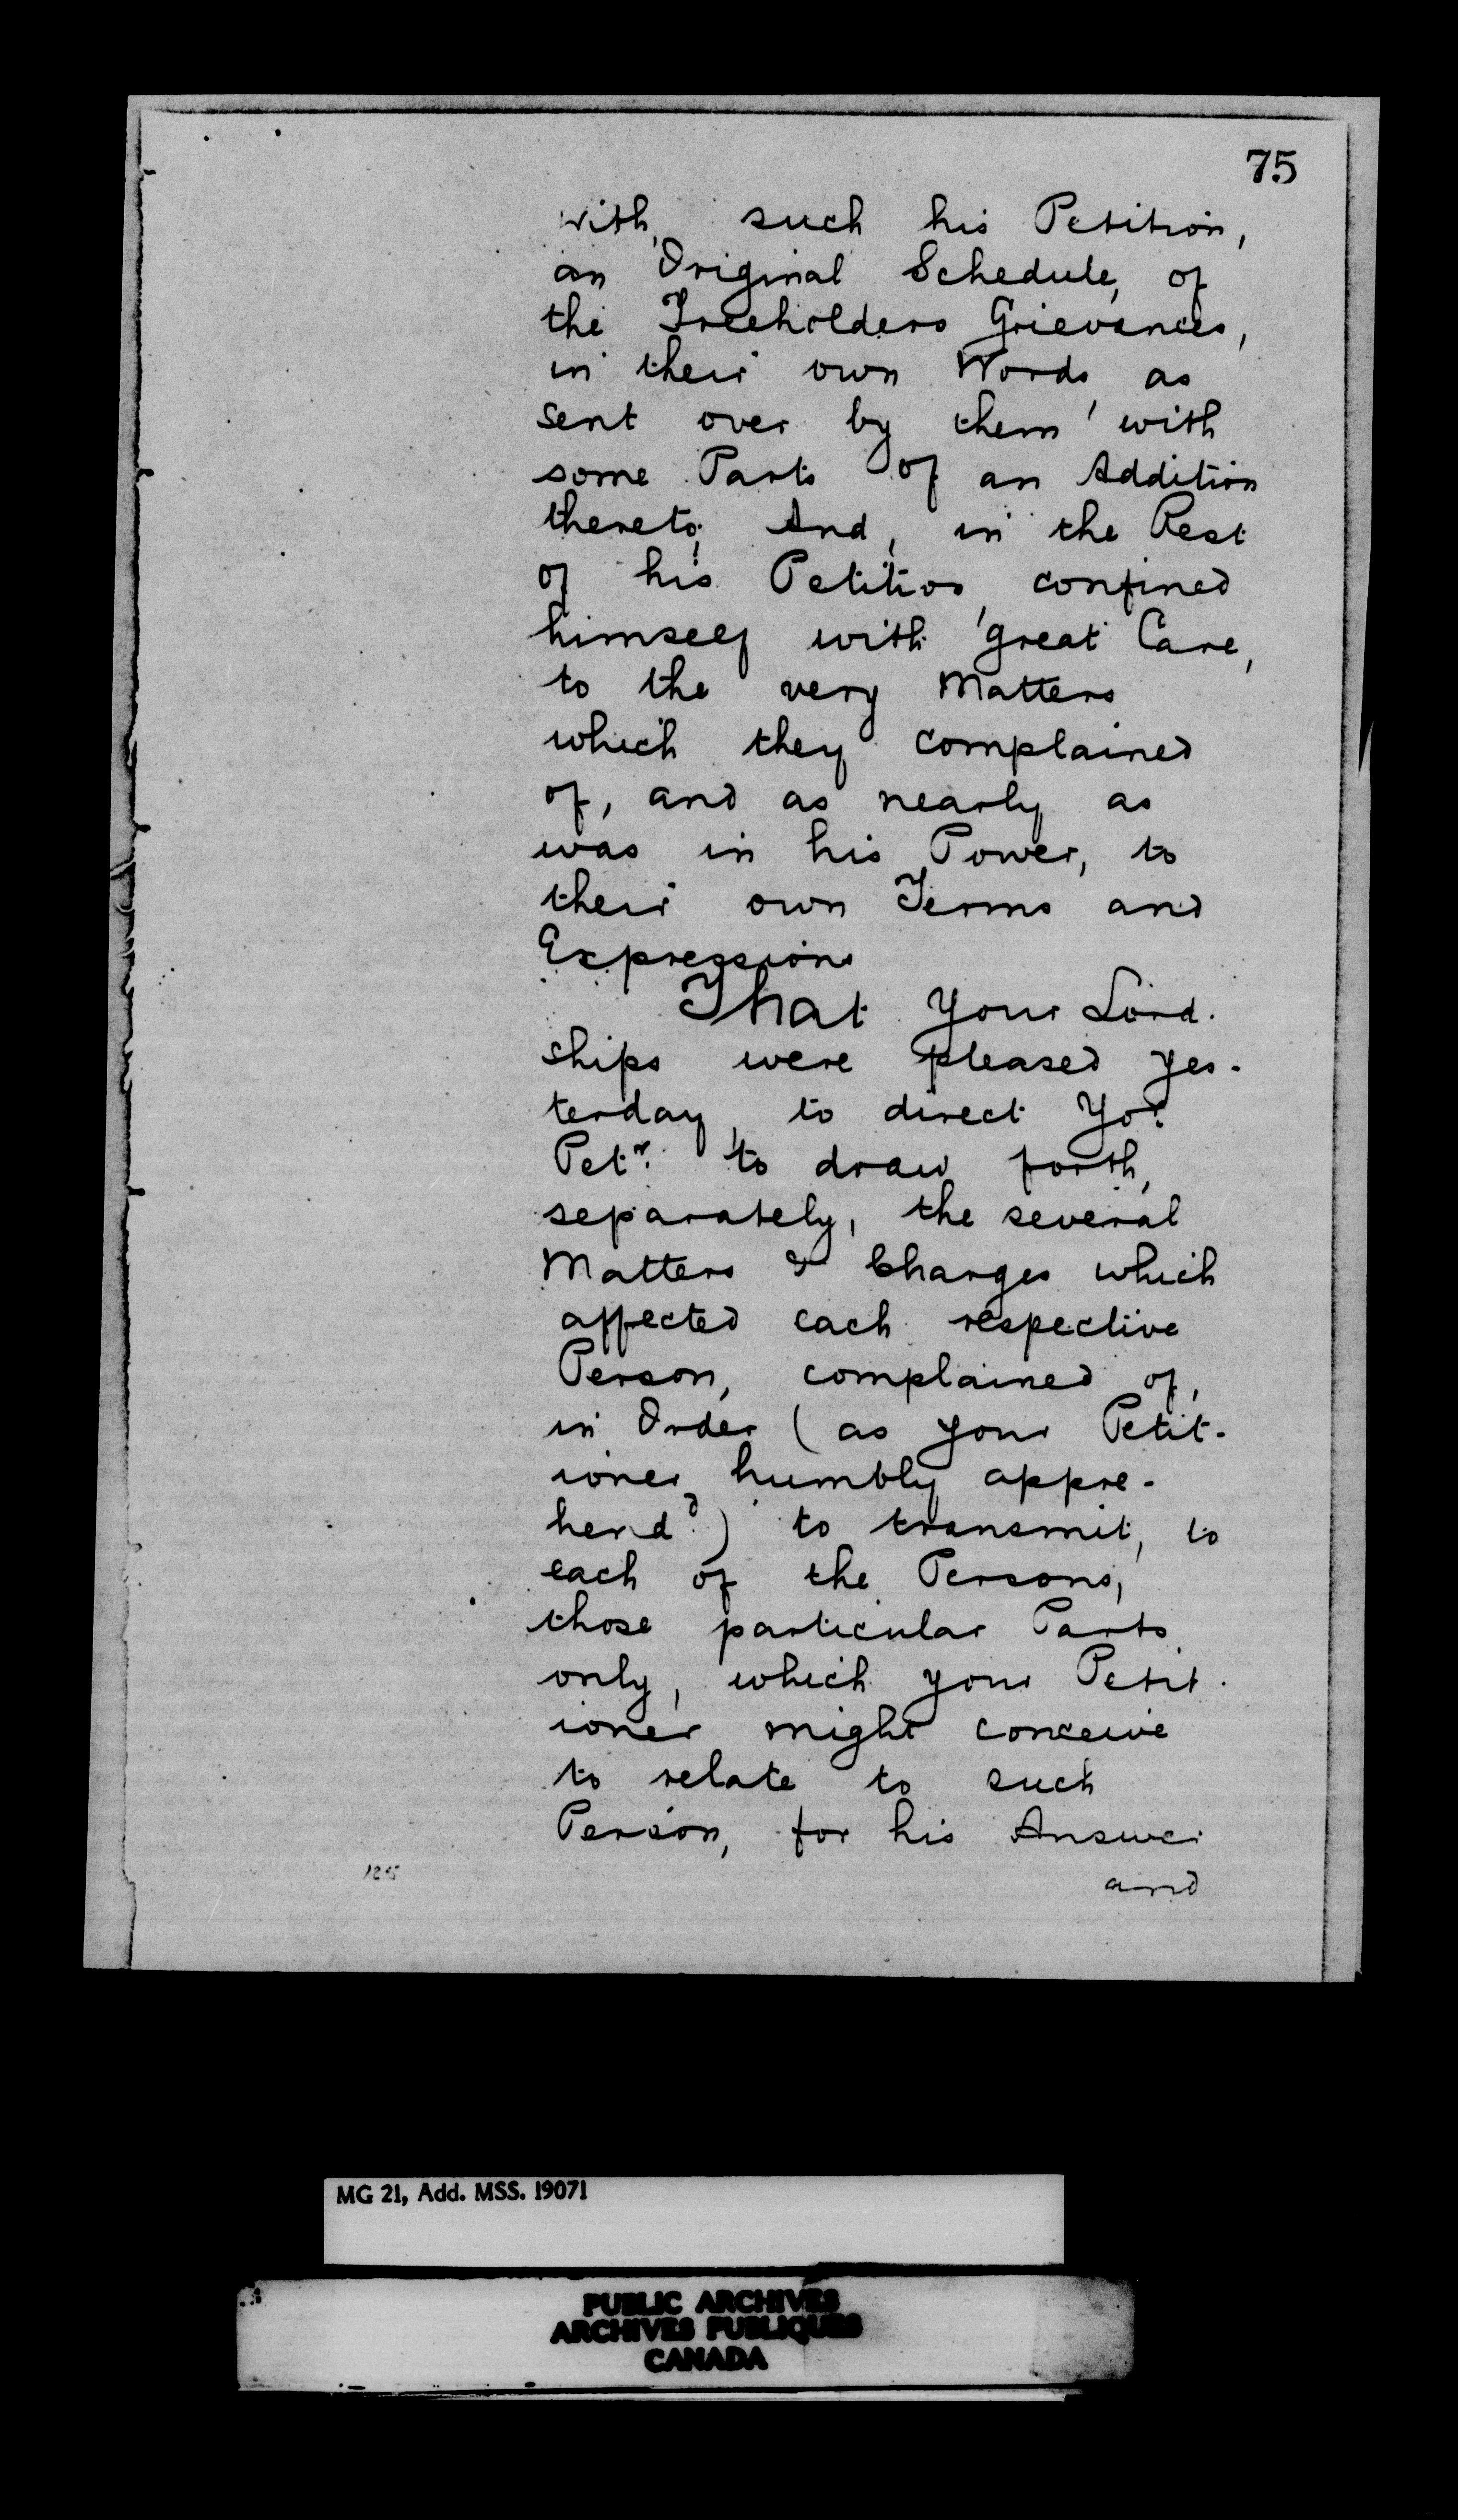 75
with, such his Petition,
an Original Schedule, of
the Freeholders Grievances,
in their own Words, as
sent over by them, with
some Parts of an Addition
thereto; And, in the Rest
of his Petition, confined
himself with great Care,
to the very Matters
which they complained
of, and as nearly as
was in his Power, to
their own Terms and
Expressions
That your Lord-
ships were pleased yes-
terday, to direct Yor.
Petr. to draw forth,
separately, the several
Matters & Charges which
affected each respective
Person, complained of,
in Order (as your Petit-
ioner humbly appre-
hend'd) to transmit, to
each of the Persons,
those particular Parts
only, which your Petit-
ioner might conceive
to relate to such
Person, for his Answer
and
125
MG 21, Add. MSS. 19071
PUBLIC ARCHIVES
ARCHIVES PUBLIQUES
CANADA